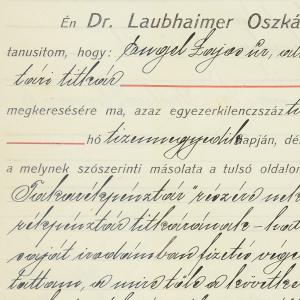 Én Dr. Laubhaimer Oszká
tanusitom, hogy: Engel Lajos úr,
tári titkár
megkeresésére ma, azaz egyezerkilenczszáz ti
hó tizennegyedik napján, dé
a melynek szószerinti másolata a tulsó oldalon
Takarékpénztár" részére nek
rékpénztár titkárának
saját irodámban fizetés vége
tattam, a mire tőle a követke